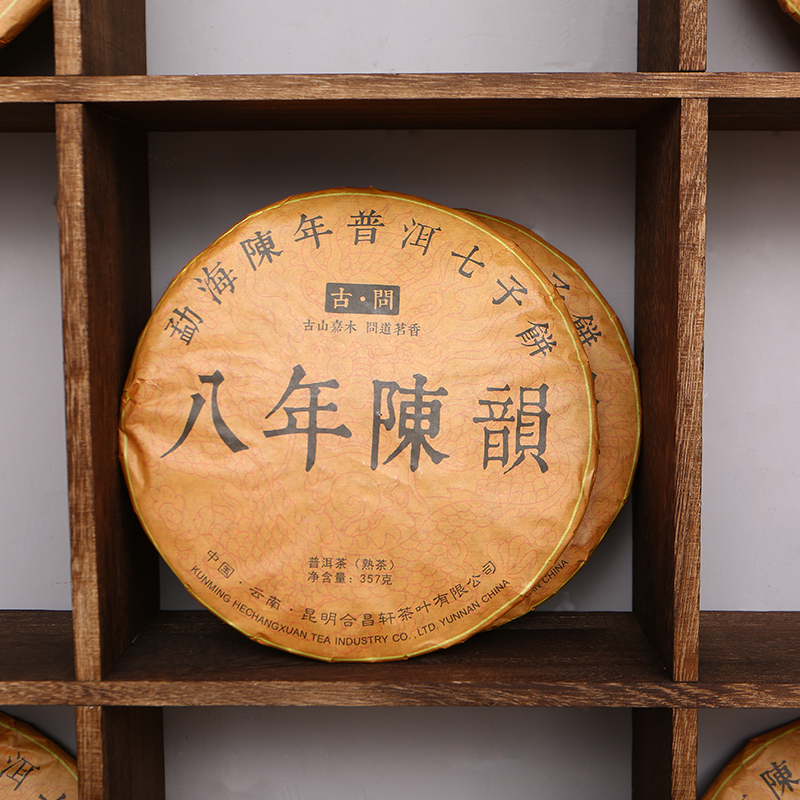 勐海陳年普洱七子餅
古·問
古山嘉木 問道茗香
八年陳韻
普洱茶（熟茶）
净含量：357克
中国·云南·昆明合昌轩茶叶有限公司
KUNMING HECHANGXUAN TEA INDUSTRY CO., LTD. YUNNAN CHINA
子餅
IN CHINA
洱
陳